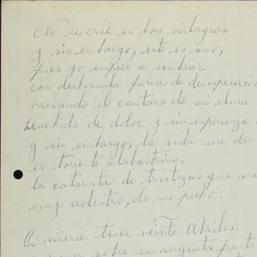 No se creé en los milagros
y sin embargo, esto es uno,
pues yo empecé a sembrar
con desbocada furia de desesperació
vaciando el cantaro de mi alma
henchido de dolor y sin esperanza
y sin embargo, la vida me de
en torrente alabastrino,
la catarata de tristezas que
muy adentro, de mi pecho.
Quisiera tener veinte Abriles
sobre su angusta